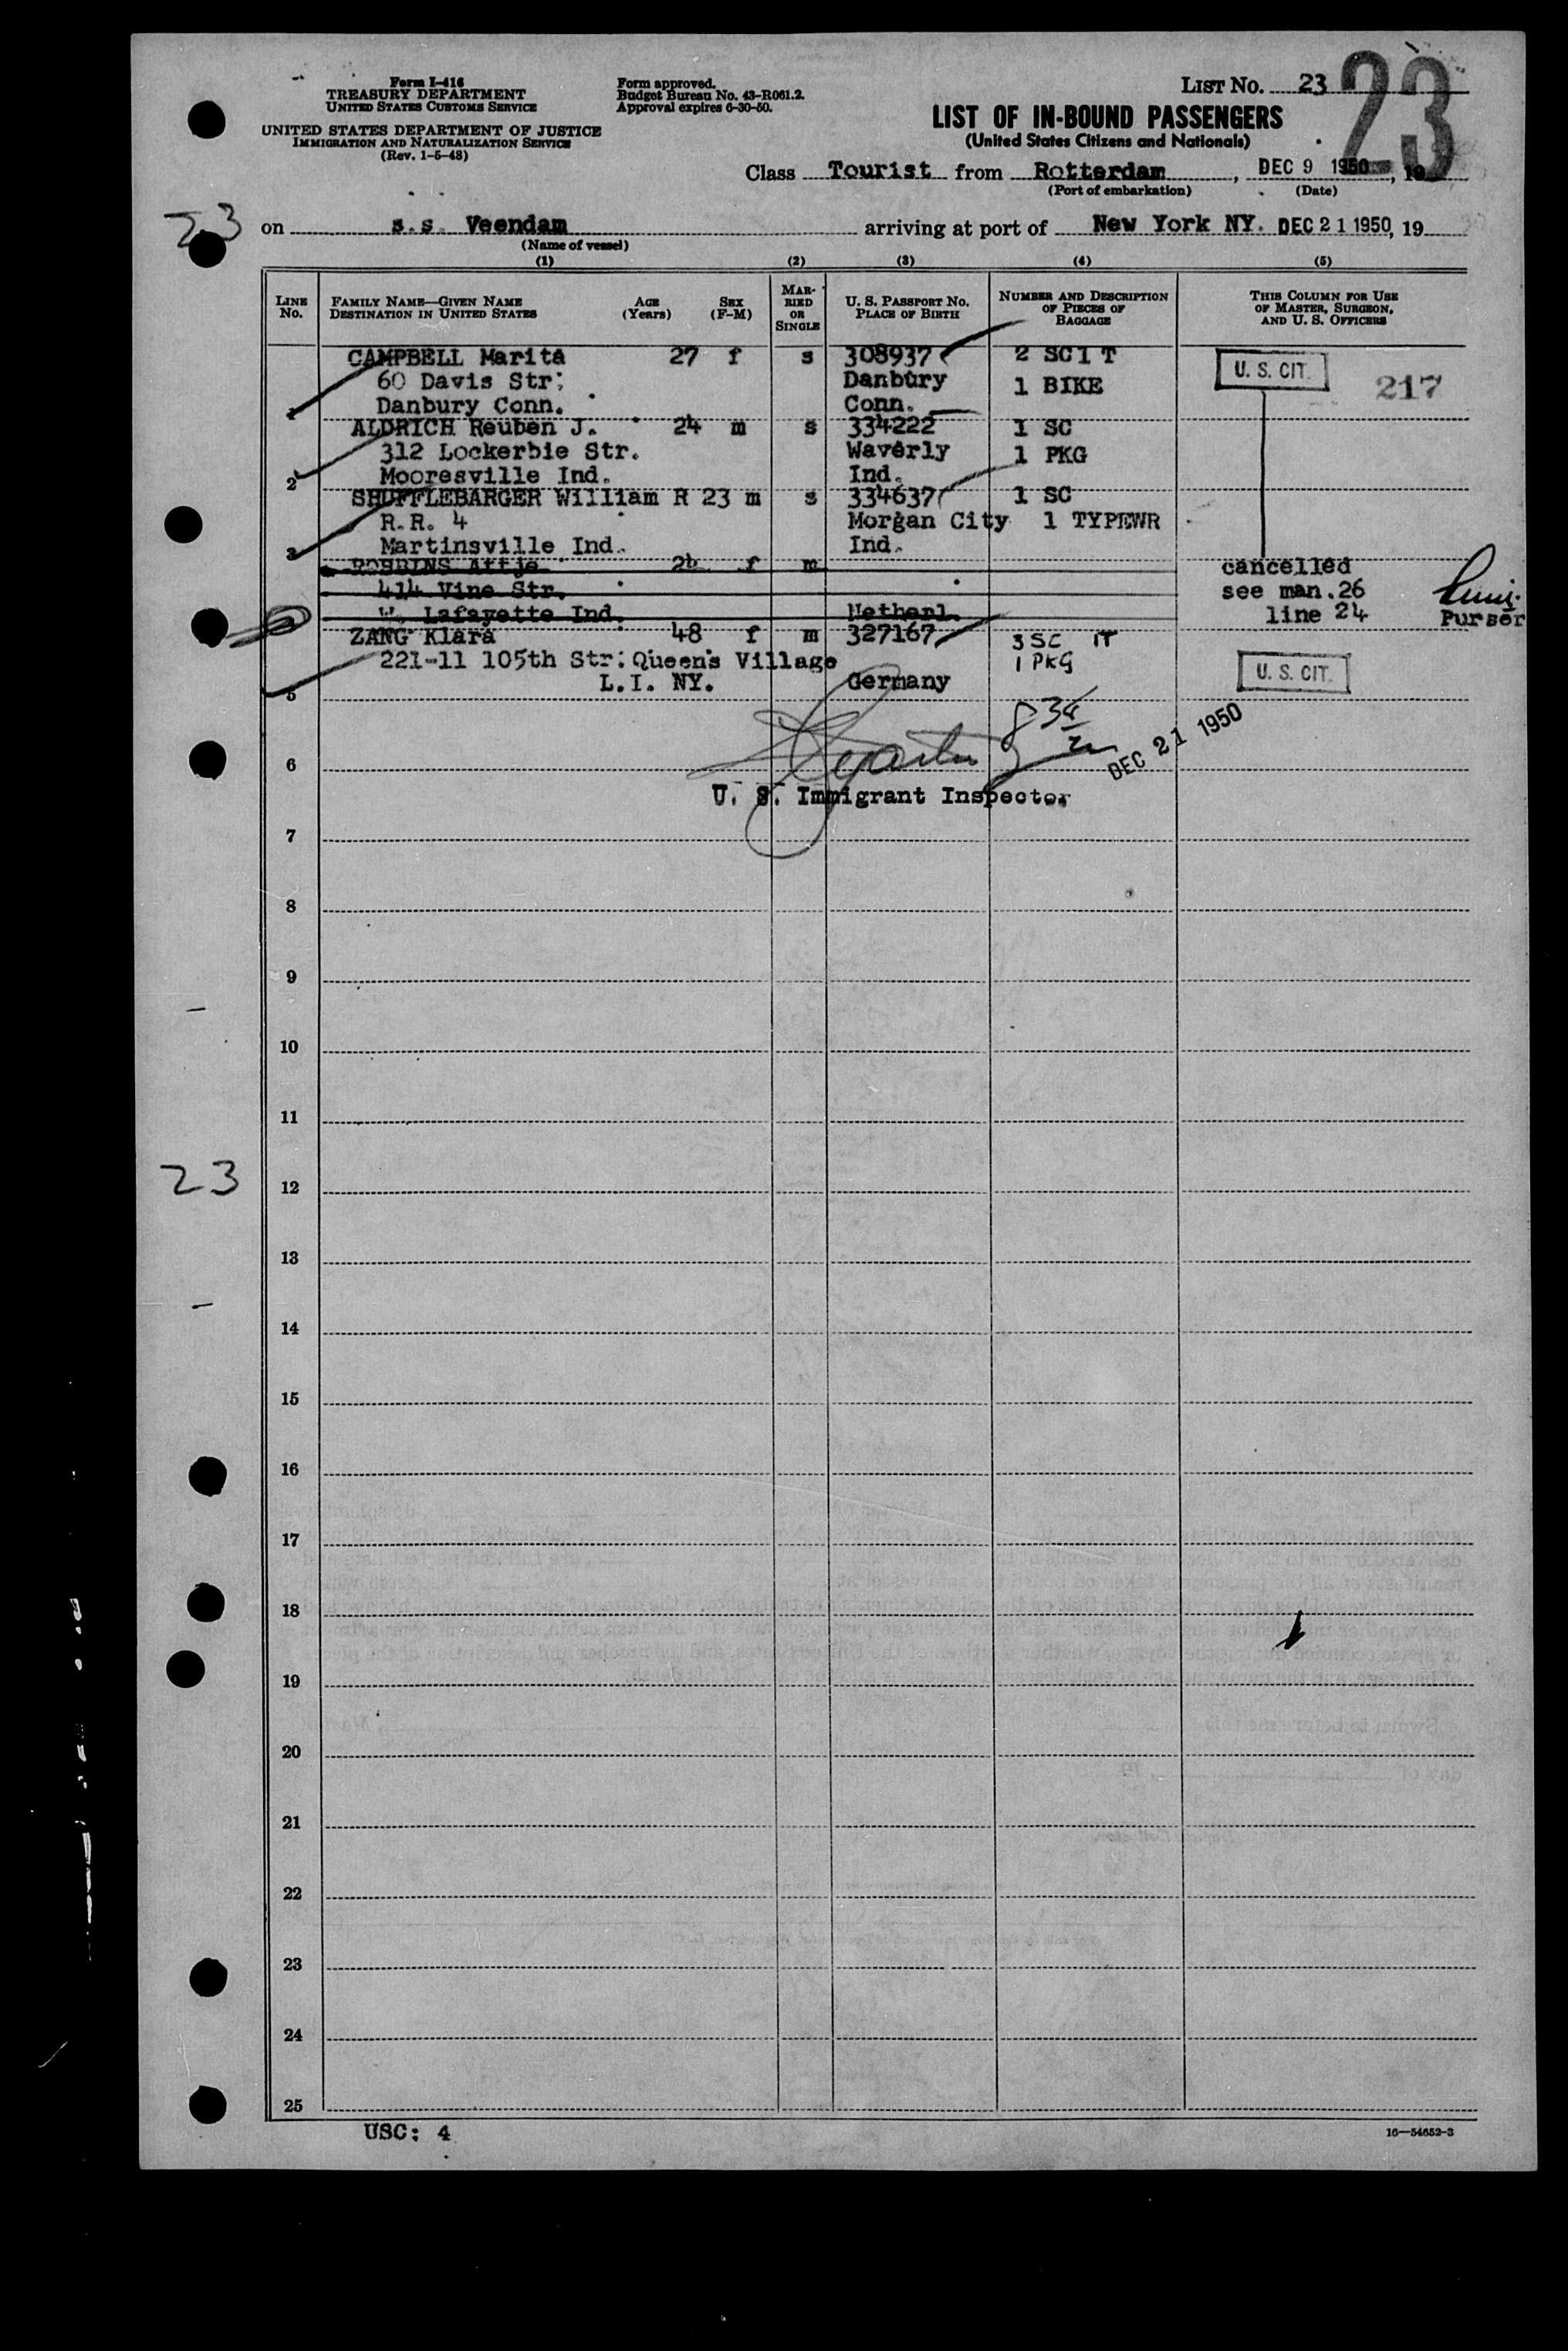 Form I-416
TREASURY DEPARTMENT
UNITED STATES CUSTOMS SERVICE
UNITED STATES DEPARTMENT OF JUSTICE
IMMIGRATION AND NATURALIZATION SERVICE
(Rev. 1-5-48)
Form approved.
Budget Bureau No. 43-R061.2.
Approval expires 6-30-50.
LIST NO. 23
23
LIST OF IN-BOUND PASSENGERS
(United States Citizens and Nationals)
Class Tourist from Rotterdam, DEC 9 1950, 19
(Port of embarkation) (Date)
23
on s.s. Veendam arriving at port of New York NY. DEC 21 1950, 19
(Name of vessel)
(1) (2) (3) (4) (5)
LINE No. FAMILY NAME—GIVEN NAME DESTINATION IN UNITED STATES AGE (Years) SEX (F-M) MARRIED OR SINGLE U. S. PASSPORT NO. PLACE OF BIRTH NUMBER AND DESCRIPTION OF PIECES OF BAGGAGE THIS COLUMN FOR USE OF MASTER, SURGEON, AND U. S. OFFICERS
CAMPBELL Marita 27 f s 308937 2 SC 1 T U. S. CIT.
60 Davis Str; Danbury 1 BIKE 217
1 Danbury Conn. Conn.
ALDRICH Reuben J. 24 m s 334222 1 SC
312 Lockerbie Str. Waverly 1 PKG
2 Mooresville Ind. Ind.
SHUFFLEBARGER William R 23 m s 334637 1 SC
R.R. 4 Morgan City 1 TYPEWR
3 Martinsville Ind. Ind.
ROBBINS Attje 26 f m cancelled
414 Vine Str. see man.26
W. Lafayette Ind. Netherl. line 24 Purser
ZANG Klara 48 f m 327167 3 SC 1T
221-11 105th Str: Queen's Village 1 PKG U. S. CIT.
5 L.I. NY. Germany
DEC 21 1950
6
U. S. Immigrant Inspector
7
8
9
10
11
23
12
13
14
15
16
17
18
19
20
21
22
23
24
25
USC: 4
16—54652-3